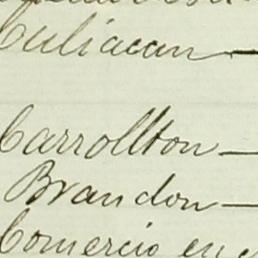 Culiacan —
Carrollton —
Brandon —
Comercio en